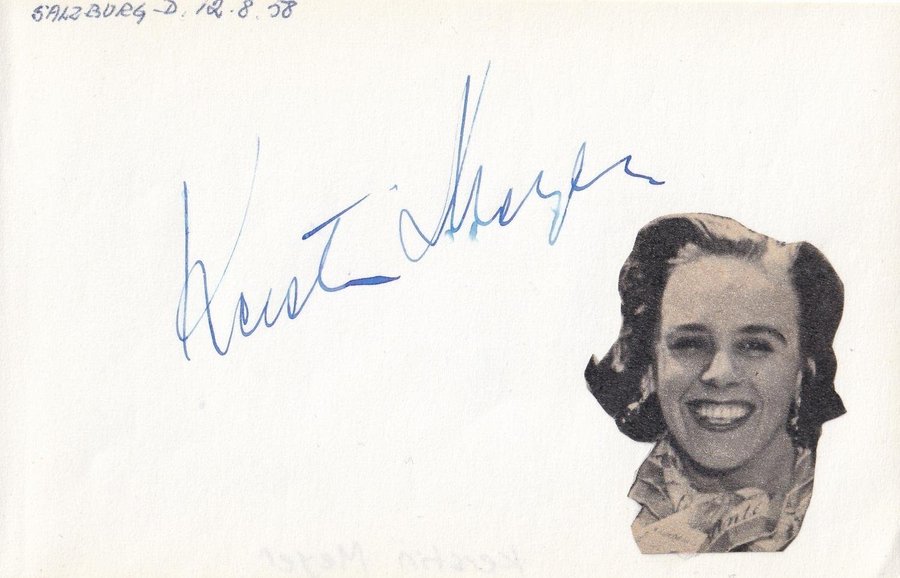 SALZBURG-D. 12.8.58
Kerstin Meyer
Kerstin Meyer